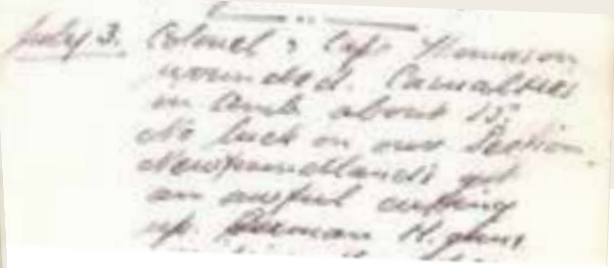 July 3. Colonel & Capt Thomason
wounded. Casualties
in Amb about 15.
No luck on our Section.
Newfoundlands got
an awful cutting
up. German M. guns